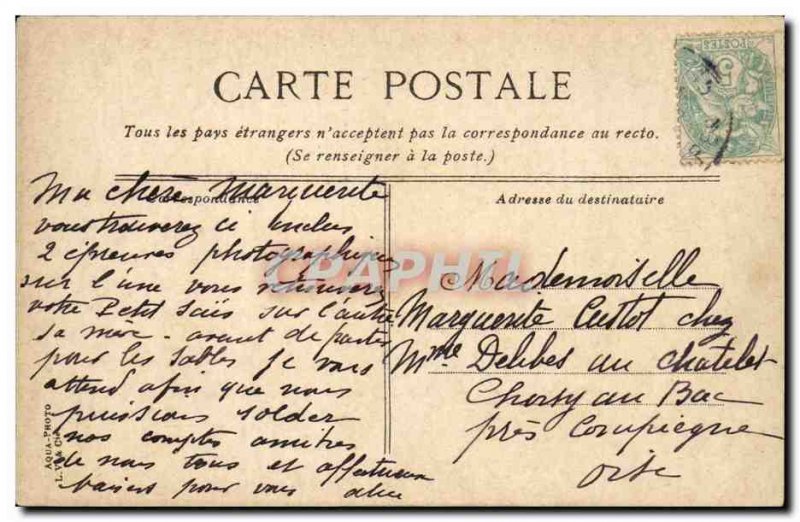 CARTE POSTALE
Tous les pays étrangers n'acceptent pas la correspondance au recto.
(Se renseigner à la poste.)
Correspondance
Adresse du destinataire
Ma chère Marguerite
vous trouverez ci inclus
2 épreuves photographiques
sur l'une vous retrouverez
votre Petit sur l'autre
sa mère avant de partir
pour les Sables Je vous
attend afin que nous
puissions solder
nos comptes amitiés
de nous tous et affectueux
baisers pour vous
Mademoiselle
Marguerite chez
Mme Delibes au chatelet
Choisy au Bac
près Compiègne
Oise
AQUA-PHOTO
POSTES
5
CPAPHIL